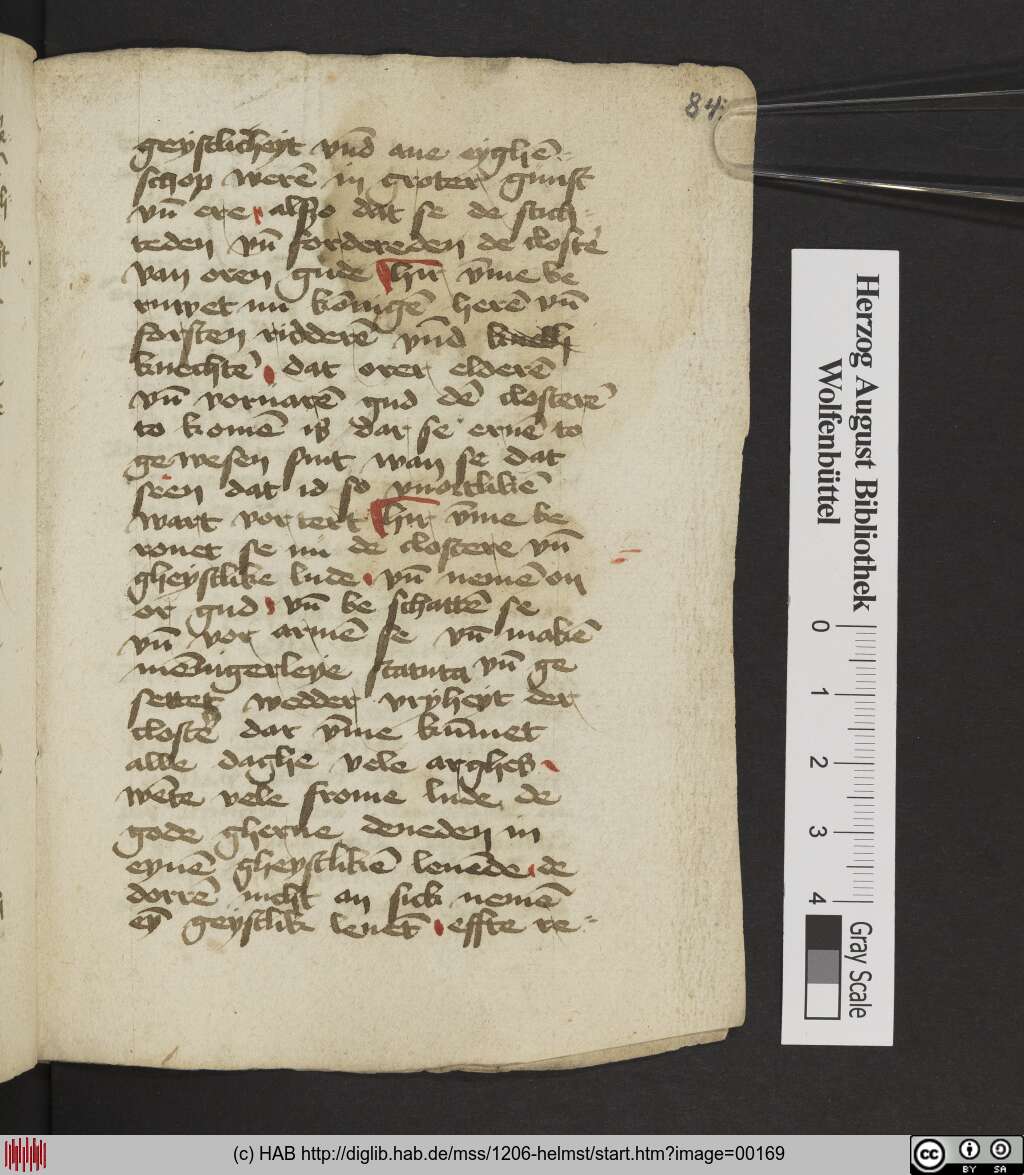 84
geystlicheyt vnd̄ ane eyghē-
schop werē in groter gunst
vn̄ ere alszo dat se de stich-
teden vn̄ fordereden de clostē
van oren gude hir vm̄e be
ruwet nu kōnigē herē vn̄
forsten ridderē vnd̄
knechtē dat orer elderē
vn̄ vornarē gud dē closterē
to komē is dar se eruē to
gewesen sint wan se dat
seen dat id so vnortlikē
wart vortert hir vm̄e be
rouet se nu de clostere vn̄
gheystlike lude vn̄ nemē on
or gud vn̄ be schattē se
vn̄ vor armē se vn̄ makē
mēnigerleye statuta vn̄ ge
settet wedder vryheyt der
clostē dar vm̄e kūmet
alle daghe vele arghes
wēte vele frome lude de
gode gherne deneden in
eynē gheystlikē leuēde de
dorrē nicht an sick nemē
eȳ geystlik leuēt effte re-
Herzog August Bibliothek
Wolfenbüttel
0 1 2 3 4
Gray Scale
(c) HAB http://diglib.hab.de/mss/1206-helmst/start.htm?image=00169
cc BY SA